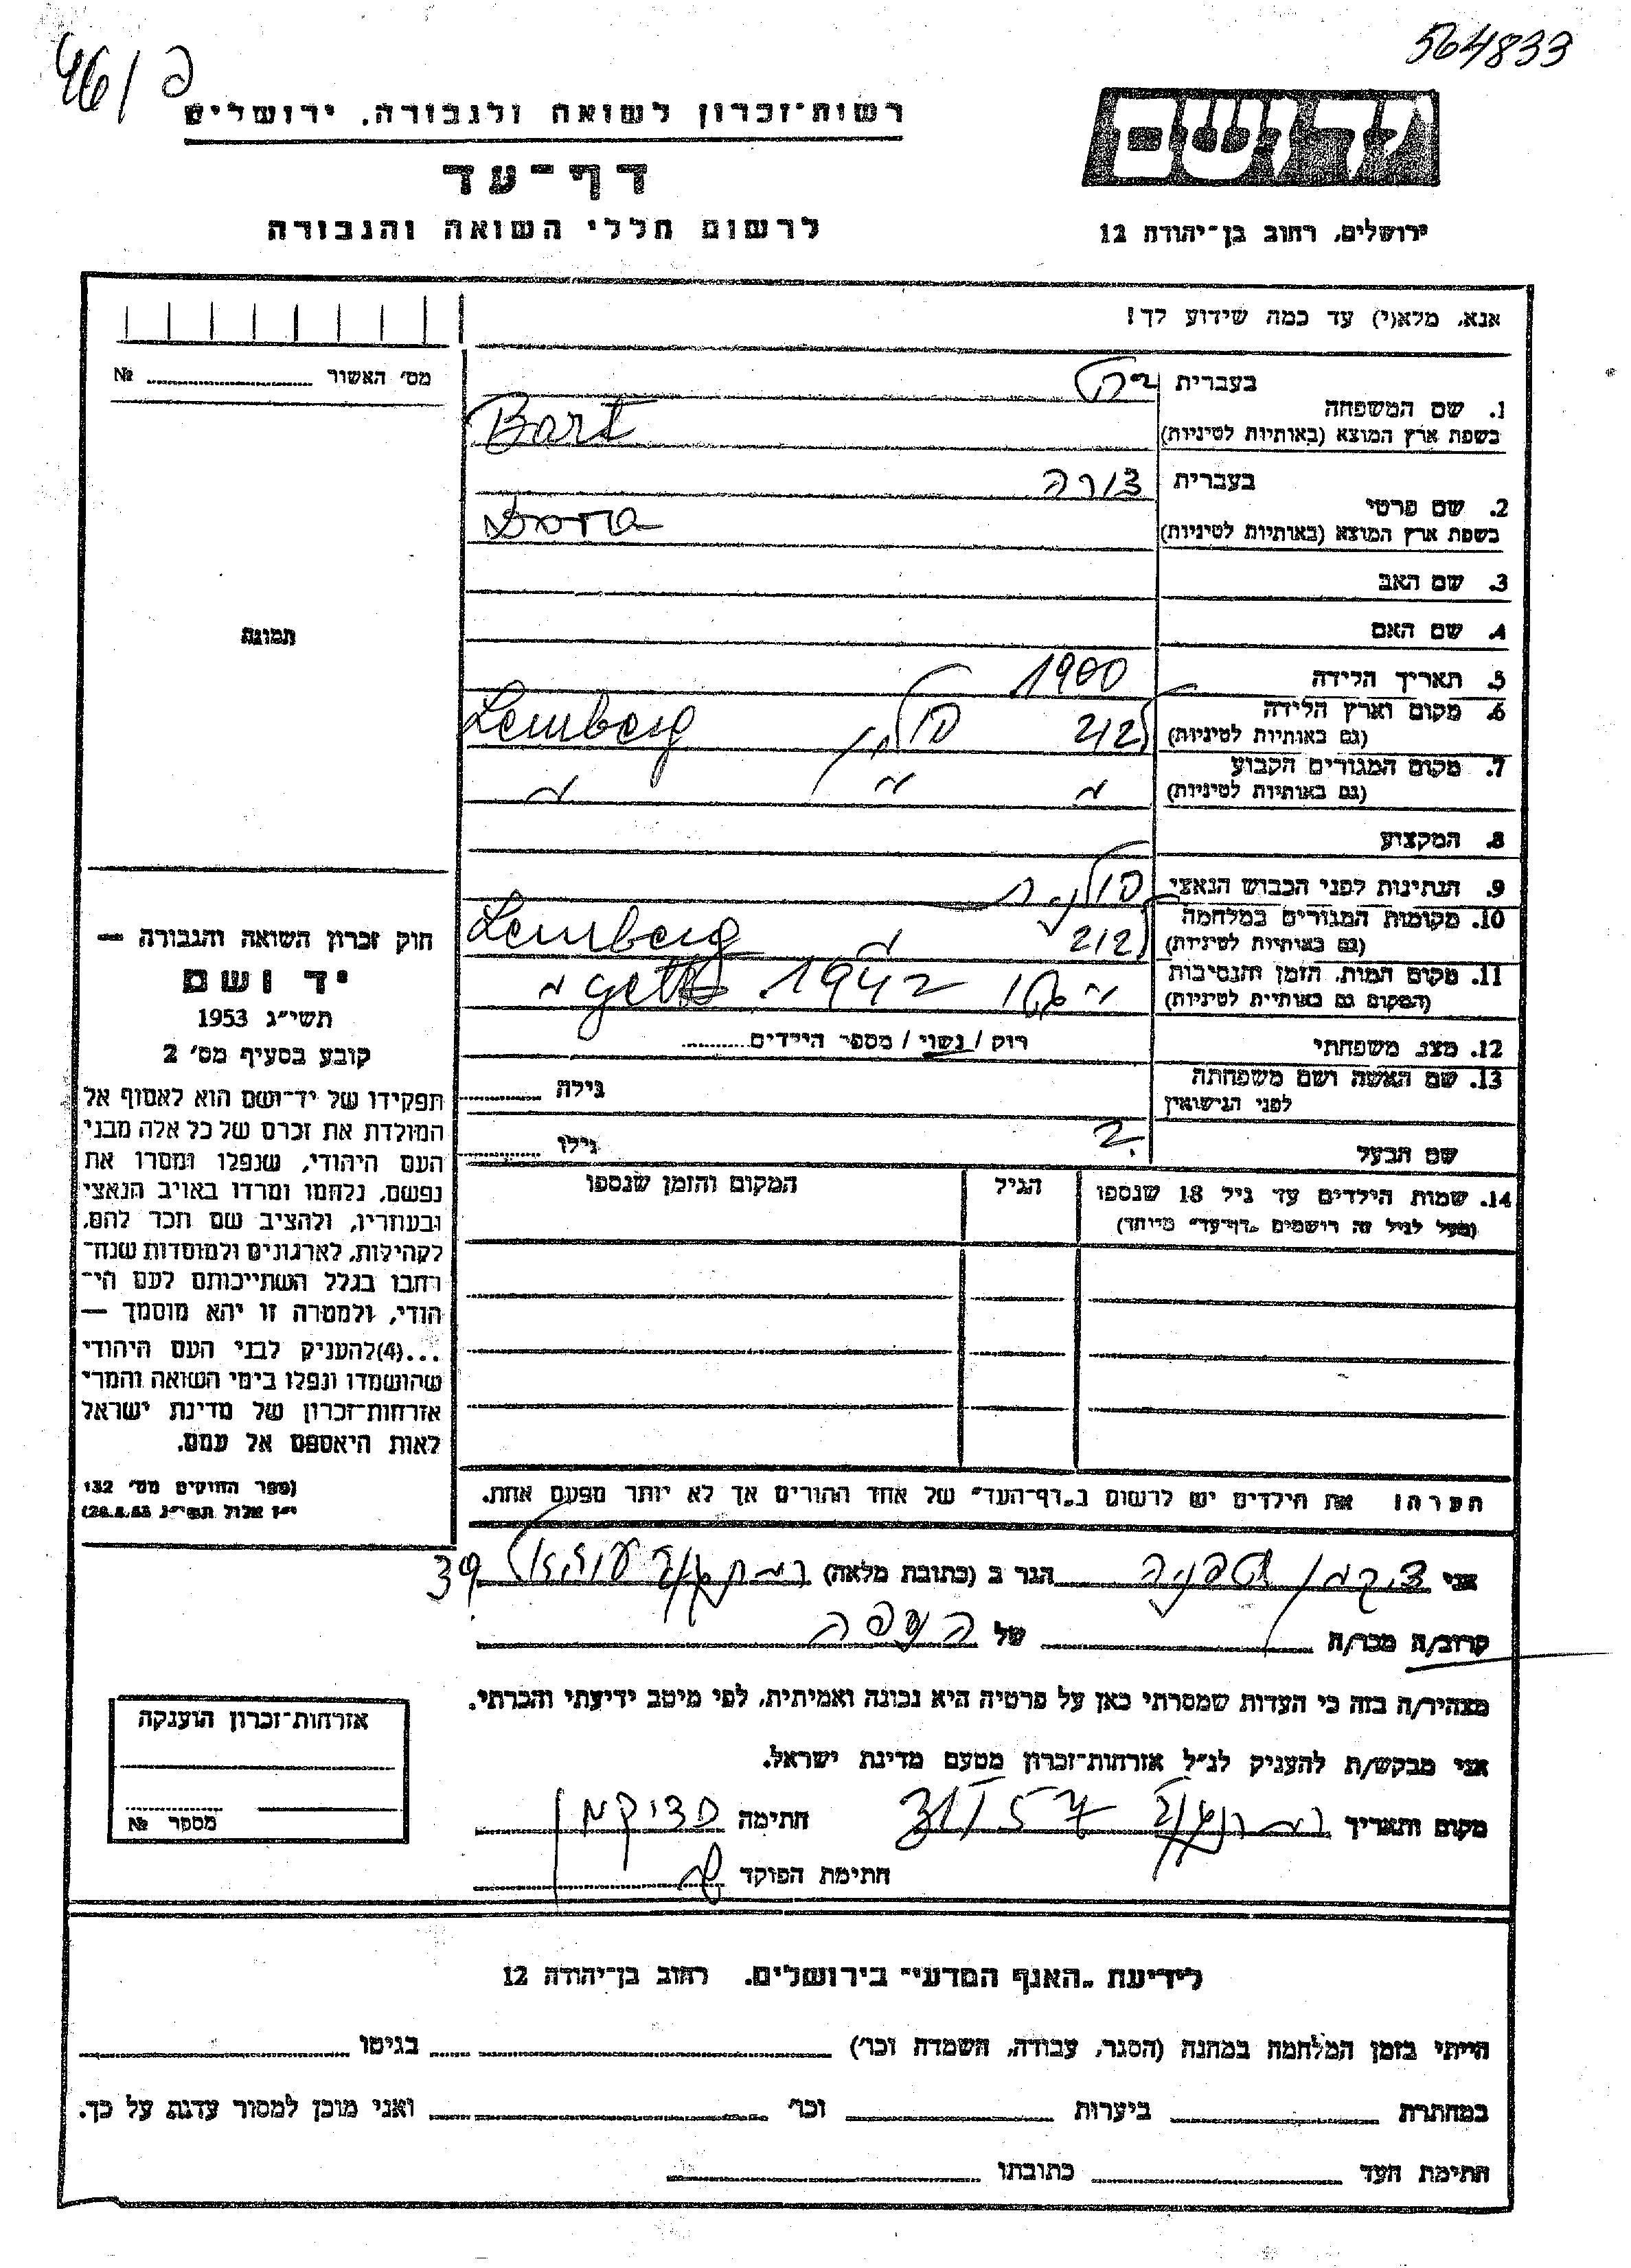 564833
46/כ
יד ושם
רשות-זכרון לשואה ולגבורה, ירושלים
דף-עד
לרשום חללי השואה והגבורה
ירושלים, רחוב בן-יהודה 12
אנא, מלא(י) עד כמה שידוע לך!
מס׳ האשור № 
בעברית
1. שם המשפחה
בשפת ארץ המוצא (באותיות לטיניות) Bart
בעברית דורה
2. שם פרטי
בשפת ארץ המוצא (באותיות לטיניות) Dora
3. שם האב
4. שם האם
5. תאריך הלידה 1900
6. מקום וארץ הלידה
(גם באותיות לטיניות) לבוב פולין Lemberg
7. מקום המגורים הקבוע
(גם באותיות לטיניות) " " "
8. המקצוע
9. הנתינות לפני הכבוש הנאצי פולנית
10. מקומות המגורים במלחמה
(גם באותיות לטיניות) לבוב " Lemberg
11. מקום המות, הזמן והנסיבות
(המקום גם באותיות לטיניות) " גטו 1942 getto "
12. מצב משפחתי רוק / נשוי / מספר הילדים
13. שם האשה ושם משפחתה
לפני הנישואין גילה
שם הבעל ? גילו
14. שמות הילדים עד גיל 18 שנספו
(מעל לגיל זה רושמים „דף-עד" מיוחד)
הגיל
המקום והזמן שנספו
הערה: את הילדים יש לרשום ב„דף-העד" של אחד ההורים אך לא יותר מפעם אחת.
תמונה
חוק זכרון השואה והגבורה —
יד ושם
תשי״ג 1953
קובע בסעיף מס׳ 2
תפקידו של יד-ושם הוא לאסוף אל
המולדת את זכרם של כל אלה מבני
העם היהודי, שנפלו ומסרו את
נפשם, נלחמו ומרדו באויב הנאצי
ובעוזריו, ולהציב שם וזכר להם,
לקהילות, לארגונים ולמוסדות שנח-
רבו בגלל השתייכותם לעם הי-
הודי, ולמטרה זו יהא מוסמך —
...(4) להעניק לבני העם היהודי
שהושמדו ונפלו בימי השואה והמרי
אזרחות-זכרון של מדינת ישראל
לאות היאספם אל עמם.
(ספר החוקים מס׳ 132
י״ז אלול תשי״ג 28.8.53)
אני הגר ב (כתובת מלאה) רמת גן 39
קרוב/ה מכר/ה של
מצהיר/ה בזה כי העדות שמסרתי כאן על פרטיה היא נכונה ואמיתית, לפי מיטב ידיעתי והכרתי.
אני מבקש/ת להעניק לנ״ל אזרחות-זכרון מטעם מדינת ישראל.
מקום ותאריך חתימה
חתימת הפוקד
אזרחות-זכרון הוענקה
מספר №
לידיעת „האגף המדעי" בירושלים, רחוב בן-יהודה 12
הייתי בזמן המלחמה במחנה (הסגר, עבודה, השמדה וכו׳) בגיטו
במחתרת ביערות וכו׳ ואני מוכן למסור עדות על כך.
חתימת העד כתובתו